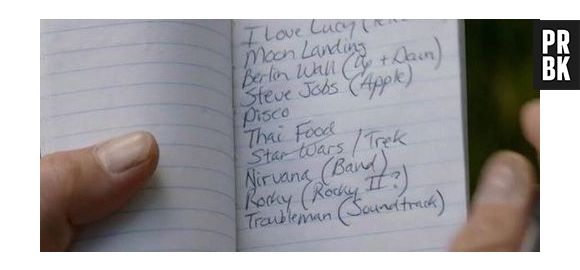 I Love Lucy
Moon Landing
Berlin Wall (Up + Down)
Steve Jobs (Apple)
Disco
Thai Food
Star Wars / Trek
Nirvana (Band)
Rocky (Rocky II?)
Troubleman (Soundtrack)
PR
BK